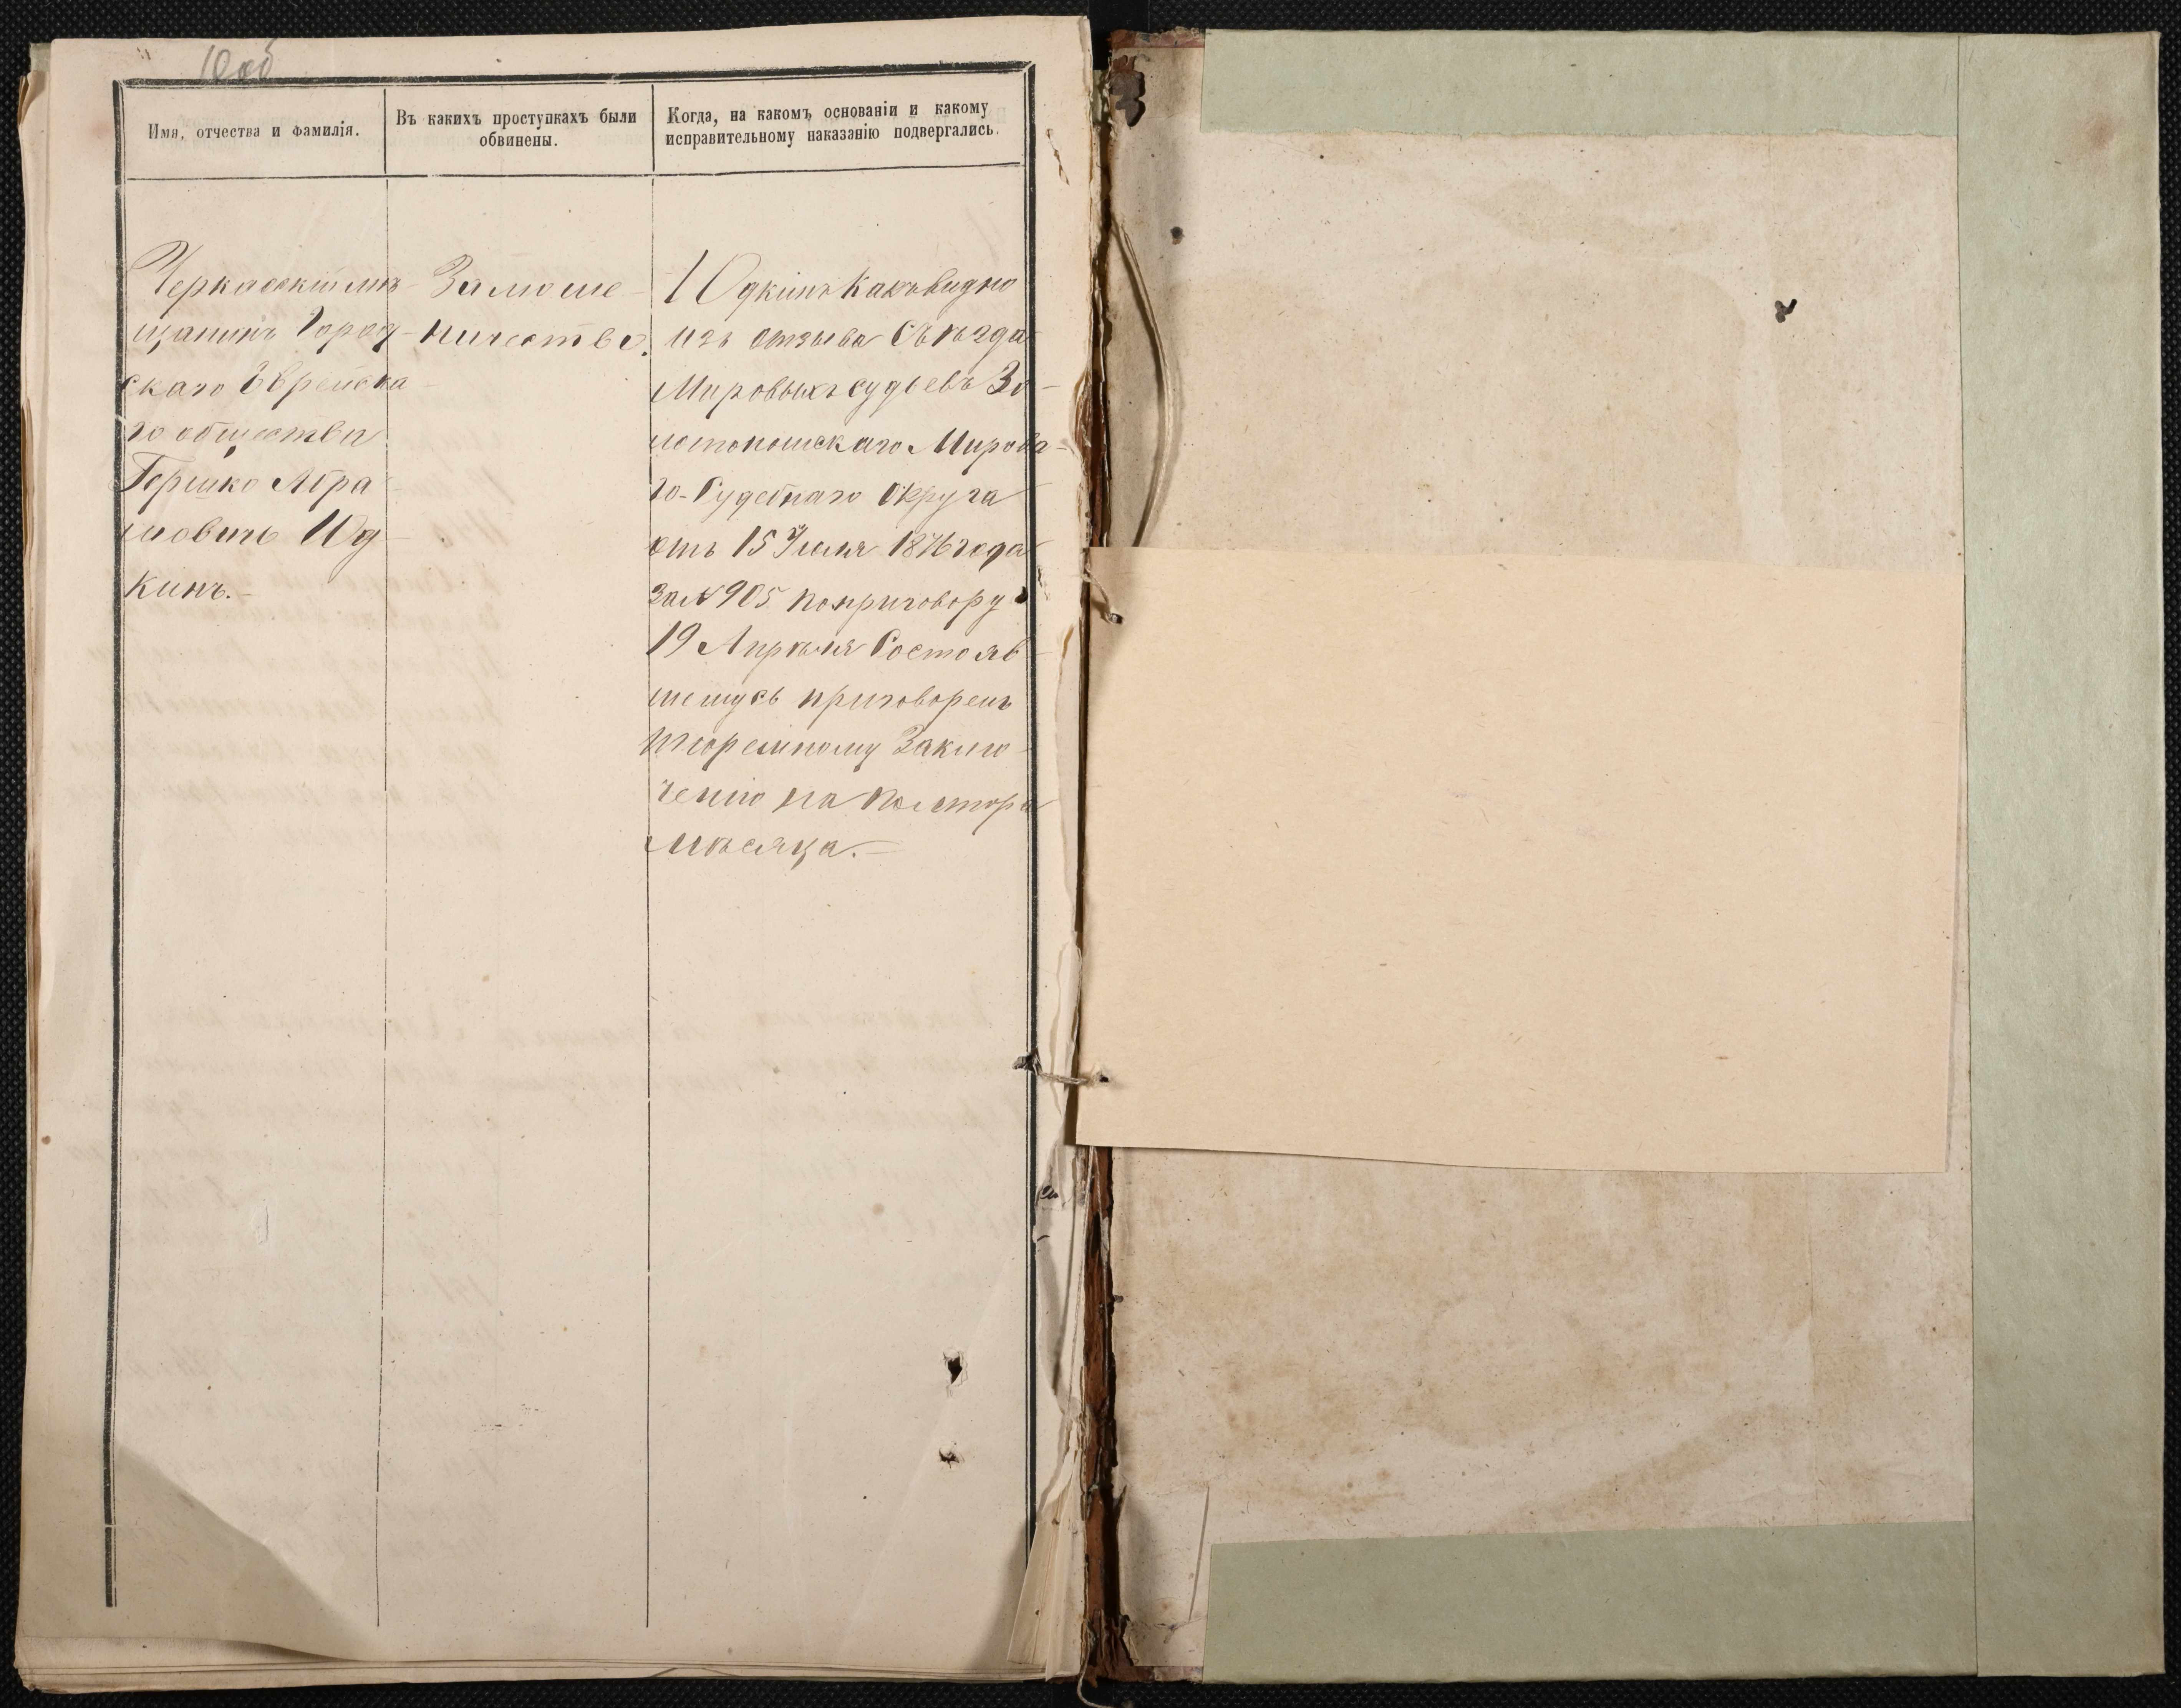 10об
Имя, отчества и фамилія.
Въ какихъ проступкахъ были
обвинены.
Когда, на какомъ основаніи и какому
исправительному наказанію подвергались.
Черкаскій мѣ-
щанинъ Город-
скаго Еврейска-
го общества
Гершко Абра-
мовичъ Юд-
кинъ.
За моше-
ничество.
Юдкинъ какъ видно
изъ отзыва Съѣзда
Мировыхъ судьевъ Зо-
лотоношскаго Мирова-
го-Судебнаго Округа
отъ 15 Іюля 1876 года
за № 905 по приговору
19 Апрѣля Состояв-
шемусь приговоренъ
тюремному Заклю-
ченію на полтора
мѣсяца.